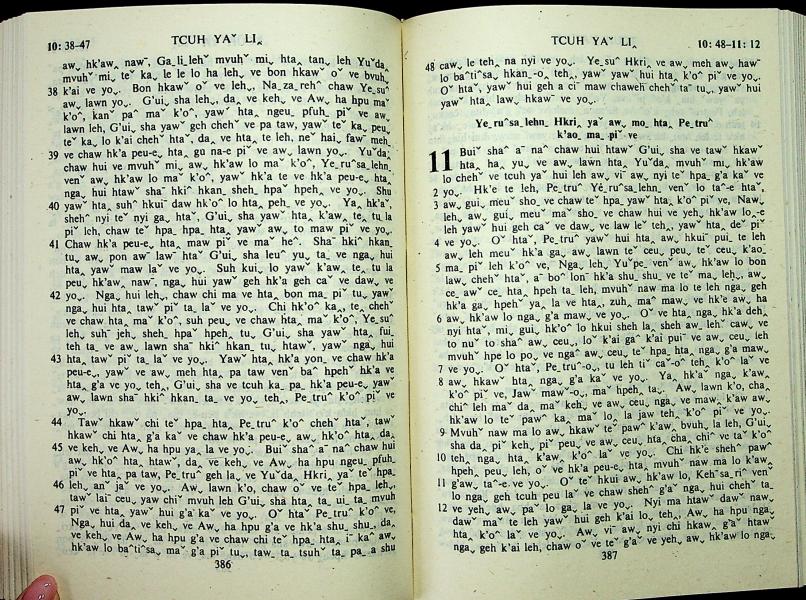 10: 38–47
TCUH YAˇ LI‸
awˬ hk'aw‸ nawˉ, Gaˍliˍlehˇ mvuhˇ miˬ htaˬ tan‸ leh Yuˇda‸
mvuhˇ miˬ teˇ ka‸ le le lo ha leh‸ ve bon hkawˇ oˇ ve bvuhˬ
38 k'ai ve yoˬ. Bon hkawˇ oˇ ve lehˬ, Naˍzaˍrehˆ chaw Ye‸suˆ
awˬ lawn yoˬ. G'uiˬ sha lehˬ, da‸ ve kehˬ ve Aw‸ ha hpu maˇ
k'oˆ, kan‸ paˉ maˇ k'oˆ, yawˇ hta‸ ngeuˬ pfuhˬ piˇ ve awˬ
lawn leh, G'uiˬ sha yaw‸ geh chehˇ ve pa taw, yawˇ teˇ kaˬ peuˬ
teˇ kaˬ lo k'ai chehˇ htaˇ, da‸ ve hta‸ te lehˬ, neˇ haiˬ fawˇ meh‸
39 ve chaw hk'a peu-e‸ hta‸ gu na-e piˇ ve awˬ lawn yoˬ. Yuˇda‸
chaw hui ve mvuhˇ miˬ aw‸ hk'aw lo maˇ k'oˆ, Ye‸ruˆsa‸lehnˍ
venˇ aw‸ hk'aw lo maˇ k'oˆ, yawˇ hk'a te ve hk'a peu-e‸ hta‸
nga‸ hui htawˇ shaˉ hkiˆ hkan‸ sheh‸ hpaˇ hpehˇ ve yoˬ. Shu
40 yawˇ hta‸ suhˆ hkuiˇ daw hk'oˆ lo hta‸ peh‸ ve yoˬ. Ya‸ hk'aˇ,
shehˆ nyi teˇ nyi ga‸ htaˇ, G'uiˬ sha yawˇ hta‸ k'aw‸ te‸ tuˍ la
piˇ leh, chaw teˇ hpaˍ hpaˍ hta‸ yawˇ awˬ to maw piˇ ve yoˬ.
41 Chaw hk'a peu-e‸ hta‸ maw piˇ ve maˇ heˆ. Shaˉ hkiˆ hkanˬ
tuˬ awˬ pon awˇ lawˉ htaˇ G'uiˬ sha leuˆ yuˬ taˍ ve nga‸ hui
hta‸ yawˇ maw laˇ ve yoˬ. Suh kuiˬ lo yawˇ k'aw‸ te‸ tuˍ la
peuˬ hk'aw‸ nawˉ, nga‸ hui yawˇ geh hk'a geh caˇ ve daw‸ ve
42 yoˬ. Nga‸ hui lehˬ, chaw chi ma ve hta‸ bon maˬ piˇ tuˬ yawˇ
nga‸ hui hta‸ tawˇ piˇ taˍ laˇ ve yoˬ. Chi hk'oˆ kaˬ, te‸ chehˇ
ve chaw hta‸ maˇ k'oˆ, suh peuˬ ve chaw hta‸ maˇ k'oˆ, Ye‸suˆ
leh‸ suhˇ jehˬ sheh‸ hpaˇ hpehˇ tuˬ, G'uiˬ sha yawˇ hta‸ fuiˬ
teh taˍ ve awˬ lawn shaˉ hkiˆ hkan‸ tuˬ htaw‸, yawˇ nga‸ hui
43 hta‸ tawˇ piˇ taˍ laˇ ve yoˬ. Yawˇ hta‸ hk'aˬ yon‸ ve chaw hk'a
peu-e‸, yawˇ ve awˬ meh hta‸ pa taw venˇ baˆ hpehˇ hk'a ve
hta‸ g'a ve yoˬ teh‸, G'uiˬ sha ve tcuh ka‸ pa‸ hk'a peu-e‸ yawˇ
awˬ lawn shaˉ hkiˆ hkanˬ taˍ ve yoˬ teh‸, Peˍtruˆ k'oˆ piˇ ve
yoˬ.
44 Tawˇ hkawˇ chi teˇ hpaˍ hta‸ Peˍtruˆ k'oˆ chehˇ htaˇ, tawˇ
hkawˇ chi hta‸ g'a kaˇ ve chaw hk'a peu-e‸ aw‸ hk'oˆ hta‸ da‸
45 ve kehˬ ve Aw‸ ha hpu ya‸ la ve yoˬ. Buiˇ shaˆ aˉ naˆ chaw hui
aw‸ hk'oˆ hta‸ htawˇ, da‸ ve kehˬ ve Aw‸ ha hpu ngeuˬ pfuhˬ
piˇ ve hta‸ pa taw, Peˍtruˆ geh la‸ ve Yuˇda‸ Hkriˬ ya‸ teˇ hpaˍ
46 leh‸ anˇ jaˇ ve yoˬ. Awˬ lawn k'o‸ chaw oˇ ve teˇ hpaˍ leh‸,
tawˇ laiˇ ceuˬ yaw‸ chiˇ mvuhˇ leh G'uiˬ sha hta‸ taˍ uiˍ taˍ mvuh
47 piˇ ve hta‸ yawˇ hui g'a kaˇ ve yoˬ. Oˇ htaˇ Peˍtruˆ k'oˆ ve,
Nga‸ hui da‸ ve kehˬ ve Aw‸ ha hpu g'a ve hk'a shuˬ shuˬ, da‸
ve kehˬ ve Aw‸ ha hpu g'a ve chaw chi teˇ hpaˍ hta‸ iˉ kaˆ aw‸
hk'aw lo baˆtiˆsaˬ maˇ g'a piˇ tuˬ, tawˍ taˍ tsuhˇ taˍ paˍ a shu
386
TCUH YAˇ LI‸
10: 48–11: 12
48 cawˬ le teh‸ na nyi ve yoˬ. Ye‸suˆ Hkriˬ ve awˬ meh aw‸ hawˉ
lo baˆtiˆsaˬ hkanˍ-o‸ teh‸ yawˇ yawˇ hui hta‸ k'oˆ piˇ ve yoˬ.
Oˇ htaˇ, yawˇ hui geh a ciˉ maw chaweh chehˇ taˆ tuˬ, yawˇ hui
yawˇ hta‸ law‸ hkawˉ ve yoˬ.
Ye‸ruˆsa‸lehnˍ Hkriˬ yaˇ aw‸ moˬ hta‸ Peˍtruˆ
k'aoˍ maˍ piˇ ve
11 Buiˇ shaˆ aˉ naˆ chaw hui htawˇ G'uiˬ sha ve tawˇ hkawˇ
hta‸ ha‸ yuˬ ve awˬ lawn hta‸ Yuˇda‸ mvuhˇ miˬ aw‸ hk'aw
lo chehˇ ve tcuh yaˇ hui leh awˬ viˇ awˬ nyi teˇ hpaˍ g'a kaˇ ve
2 yoˬ. Hk'e te leh, Peˍtruˆ Ye‸ruˆsa‸lehnˍ venˇ lo taˆ-e htaˇ,
3 aw‸ guiˬ meuˇ shoˬ ve chaw teˇ hpaˍ yawˇ hta‸ k'oˆ piˇ ve, Nawˬ
lehˬ, aw‸ guiˬ meuˇ maˇ shoˬ ve chaw hui ve yehˬ hk'aw lo‸-e
leh yawˇ hui geh caˇ ve daw‸ ve law leˇ teh‸, yawˇ hta‸ deˇ piˇ
4 ve yoˬ. Oˇ htaˇ, Peˍtruˆ yawˇ hui hta‸ aw‸ hkuiˇ puiˬ te leh
aw‸ leh meuˇ hk'a ga‸ aw‸ lawn teˇ ceuˬ peuˬ teˇ ceuˬ k'aoˍ
5 maˍ piˇ leh k'oˆ ve, Nga‸ lehˬ, Yuˇpe‸ venˇ aw‸ hk'aw lo bon
law‸ chehˇ htaˇ, aˉ boˆ lonˆ hk'a shuˬ shuˬ ve teˇ maˬ lehˬ, aw‸
ceˬ awˇ ceˬ hta‸ hpeh taˍ leh, mvuhˇ naw ma lo te leh nga‸ geh
hk'a ga‸ hpehˇ ya‸ la ve hta‸, zuh‸ maˆ maw‸ ve hk'e aw‸ ha
6 aw‸ hk'aw lo nga‸ g'a maw‸ ve yoˬ. Oˇ ve hta‸ nga‸ hk'a dehˬ
nyi htaˇ, miˇ guiˬ hk'oˆ lo hkui sheh la‸ sheh aw‸ leh caw‸ ve
to nuˇ to shaˆ awˬ ceuˬ, loˇ k'ai gaˆ k'ai puiˇ ve awˬ ceuˬ leh
mvuhˇ hpe lo po‸ ve ngaˆ awˬ ceuˬ teˇ hpaˍ hta‸ nga‸ g'a maw‸
7 ve yoˬ. Oˇ htaˇ, Peˍtruˆ-oˬ, tu leh tiˇ caˇ-oˆ teh‸ k'oˆ ve
8 awˬ hkawˇ hta‸ nga‸ g'a kaˇ ve yoˬ. Ya‸ hk'aˇ, nga‸ k'aw‸
k'oˆ piˇ ve, Jaw‸ mawˇ-oˬ, maˇ hpehˇ taˬ. Awˬ lawn k'o‸ chaˬ
chiˆ leh maˇ da‸ maˇ kehˬ ve awˬ ceuˬ nga‸ ve maw‸ k'aw aw‸
hk'aw lo teˇ pawˆ kaˬ maˇ lo‸ la jaw teh‸ k'oˆ piˇ ve yoˬ.
9 Mvuhˇ naw ma lo aw‸ hkawˇ teˇ pawˆ k'aw‸ bvuhˬ la leh, G'uiˬ
sha da‸ piˇ kehˬ piˇ peuˬ ve awˬ ceuˬ hta‸ chaˬ chiˆ ve taˇ k'oˆ
10 teh‸ nga‸ hta‸ k'aw‸ k'oˆ laˇ ve yoˬ. Chi hk'e shehˆ pawˆ
hpehˇ peuˬ leh‸ oˇ ve hk'a peu-e‸ hta‸ mvuhˇ naw ma lo k'aw‸
11 g'aw‸ taˆ-e ve yoˬ. Oˇ teˇ hkui aw‸ hk'aw lo‸ Kehˇsaˍriˇ venˇ
lo nga‸ geh tcuh peuˬ la ve chaw shehˆ g'aˇ nga‸ hui chehˇ taˍ
12 ve yehˬ awˬ paˇ lo gaˬ la ve yoˬ. Nyi ma htawˇ dawˇ nawˬ
dawˇ maˇ te leh yawˇ hui geh k'ai lo‸ teh‸ Aw‸ ha hpu nga‸
hta‸ k'oˆ laˇ ve yoˬ. Awˬ viˇ awˬ nyi chi hkaw‸ g'aˇ htawˇ
nga‸ geh k'ai leh, chaw oˇ ve teˇ g'aˇ ve yehˬ aw‸ hk'aw lo nga‸
387